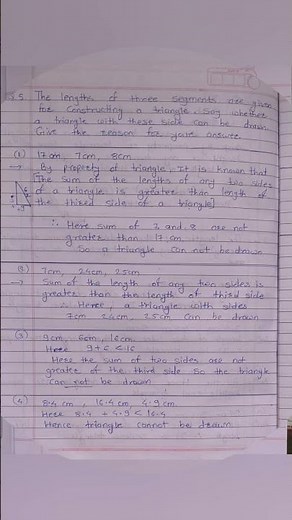 5. The lengths of three segments are given
for constructing a triangle. Say whether
a triangle with these side can be drawn.
Give the reason for your answer
(1) 17 cm, 7cm, 8cm
→ By property of triangle, It is known that
[The sum of the lengths of any two sides
of a triangle is greater than length of
the third side of a triangle]
∴ Here sum of 7 and 8 are not
greater than 17 cm
So a triangle can not be drawn
(2) 7cm, 24cm, 25cm
→ Sum of the length of any two sides is
greater than the length of third side
∴ Hence, a triangle with sides
7cm 24cm, 25cm can be drawn
(3) 9cm, 6cm, 16cm
Here 9+6<16
Here the sum of two sides are not
greater of the third side so the triangle
can not be drawn
(4) 8.4 cm, 16.4 cm, 4.9 cm
Here 8.4 + 4.9 < 16.4
Hence triangle cannot be drawn